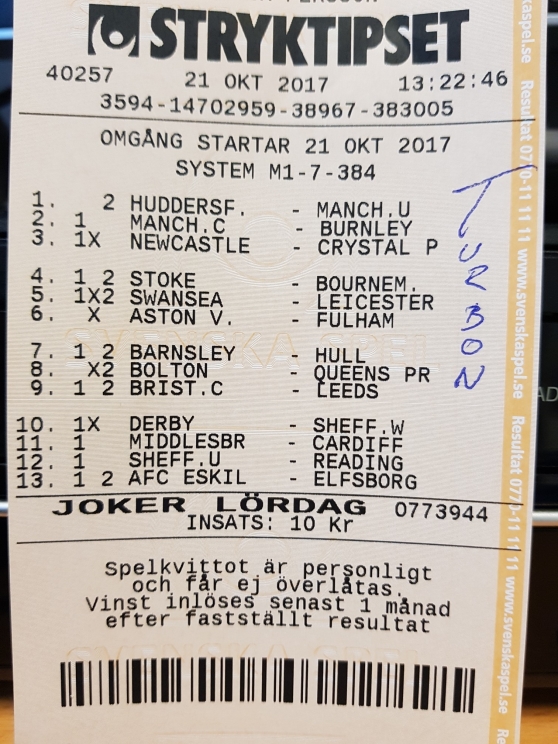 STRYKTIPSET
40257 21 OKT 2017 13:22:46
3594-14702959-38967-383005
OMGÅNG STARTAR 21 OKT 2017
SYSTEM M1-7-384
1. 2 HUDDERSF. - MANCH.U
2. 1 MANCH.C - BURNLEY
3. 1X NEWCASTLE - CRYSTAL P
4. 1 2 STOKE - BOURNEM.
5. 1X2 SWANSEA - LEICESTER
6. X ASTON V. - FULHAM
7. 1 2 BARNSLEY - HULL
8. X2 BOLTON - QUEENS PR
9. 1 2 BRIST.C - LEEDS
10. 1X DERBY - SHEFF.W
11. 1 MIDDLESBR - CARDIFF
12. 1 SHEFF.U - READING
13. 1 2 AFC ESKIL - ELFSBORG
JOKER LÖRDAG 0773944
INSATS: 10 Kr
Spelkvittot är personligt
och får ej överlåtas.
Vinst inlöses senast 1 månad
efter fastställt resultat
TURBON
Resultat 0770-11 11 11 www.svenskaspel.se
Resultat 0770-11 11 11 www.svenskaspel.se